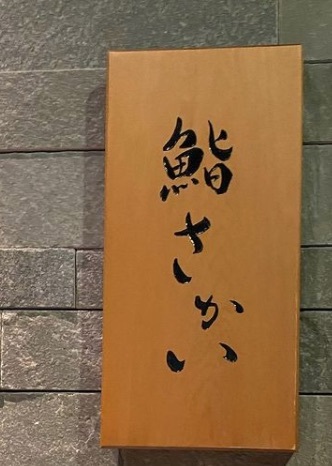 鮨さかい